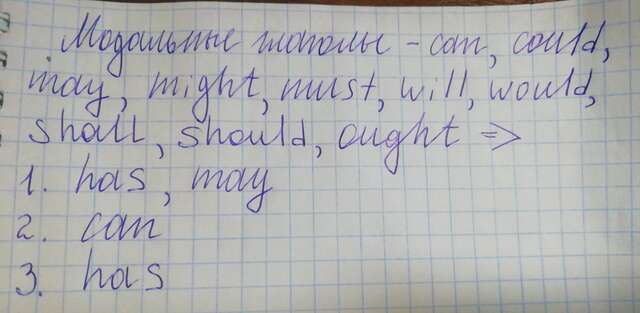 Модальные глаголы - can, could,
may, might, must, will, would,
shall, should, ought =>
1. has, may
2. can
3. has